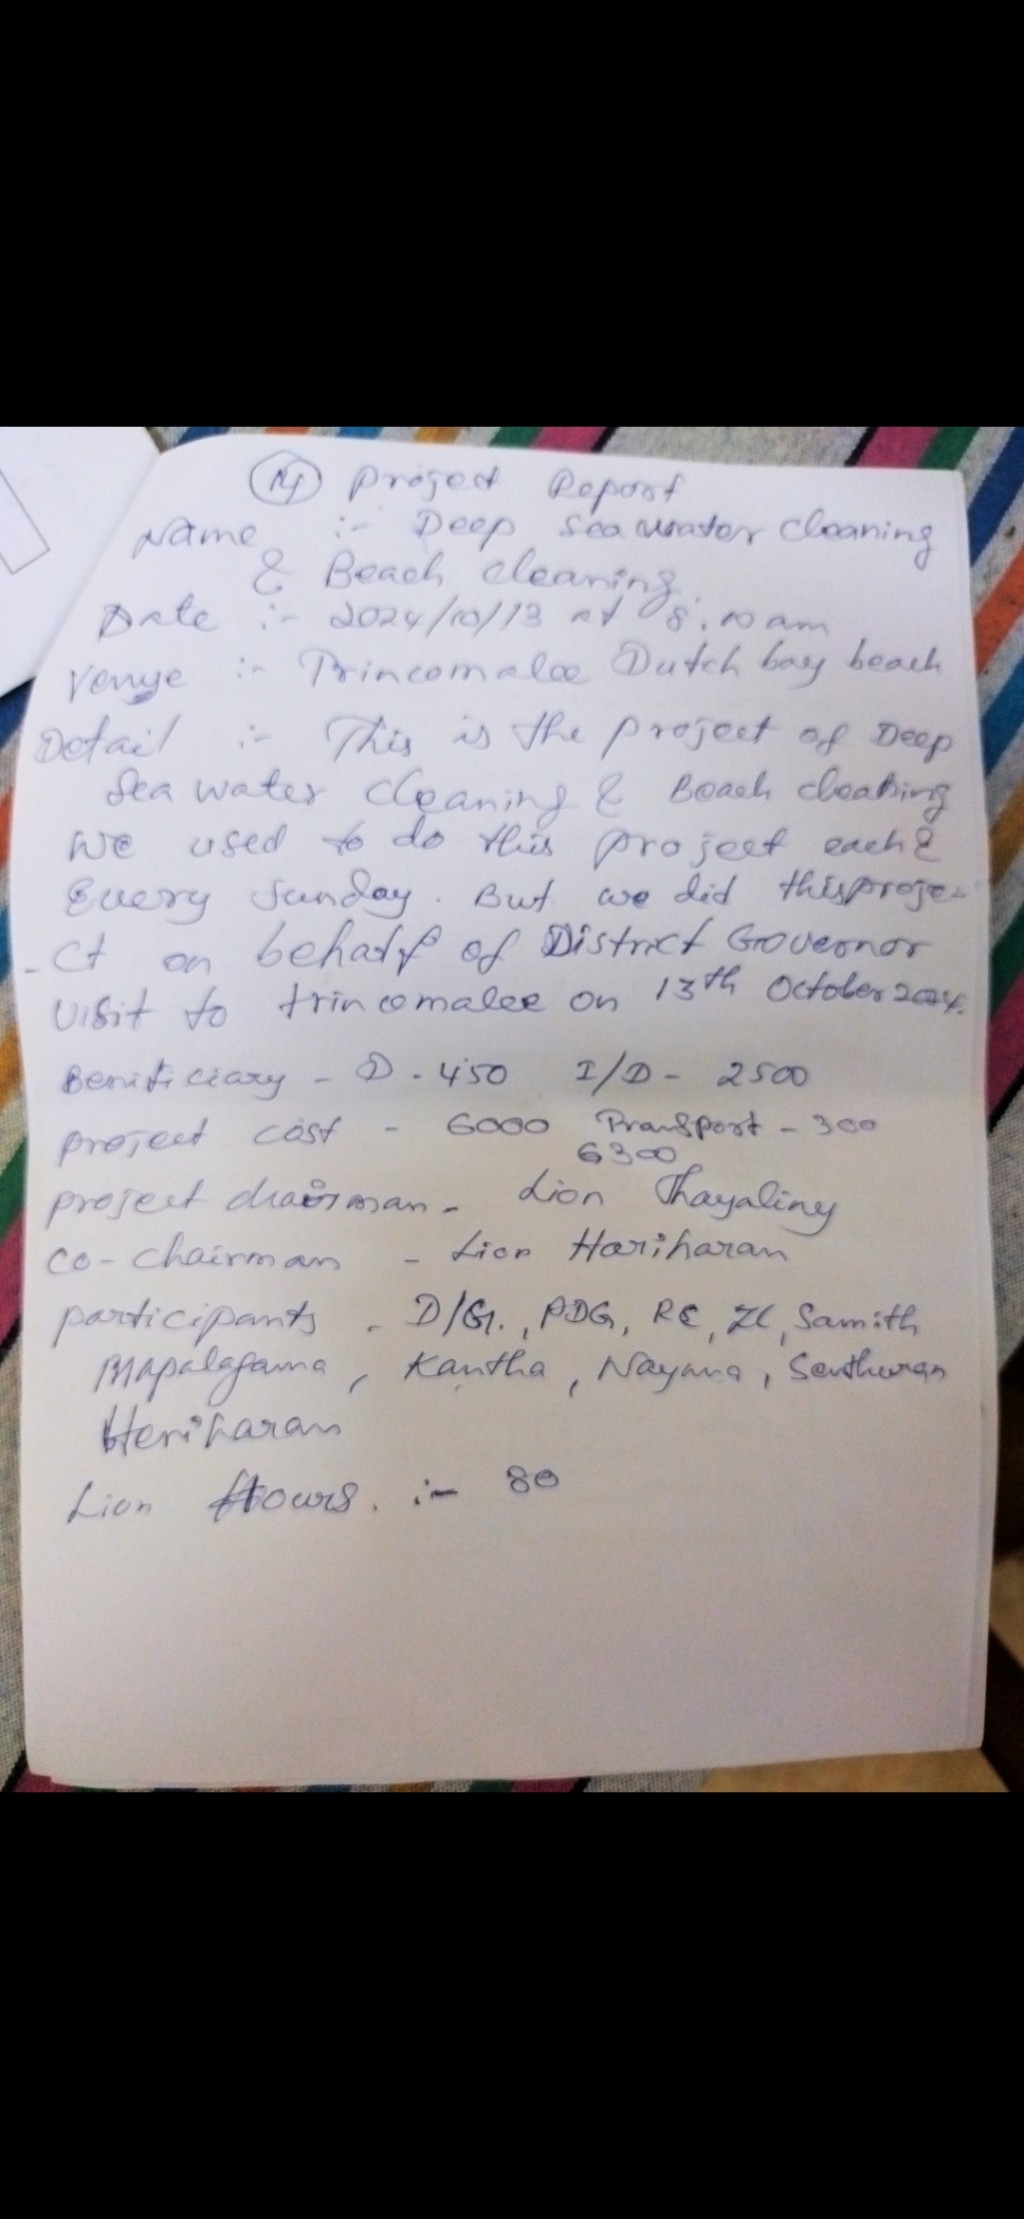 14 Project Report
Name :- Deep Sea water cleaning
& Beach cleaning
Date :- 2024/10/13 at 8.10 am
Venue :- Trincomalee Dutch bay beach
Detail :- This is the project of Deep
Sea water cleaning & Beach cleaning
We used to do this project each &
Every Sunday. But we did this proje-
-ct on behalf of District Governor
Visit to trincomalee on 13th October 2024.
Benificiary - D - 450 I/D - 2500
project cost - 6000 Transport - 300
6300
project chairman - Lion Thayaliny
co-chairman - Lion Hariharan
participants - D/G., PDG, RC, ZC, Samith
Mapalagama, Kantha, Nayana, Senthuran
Hariharan
Lion Hours. :- 80